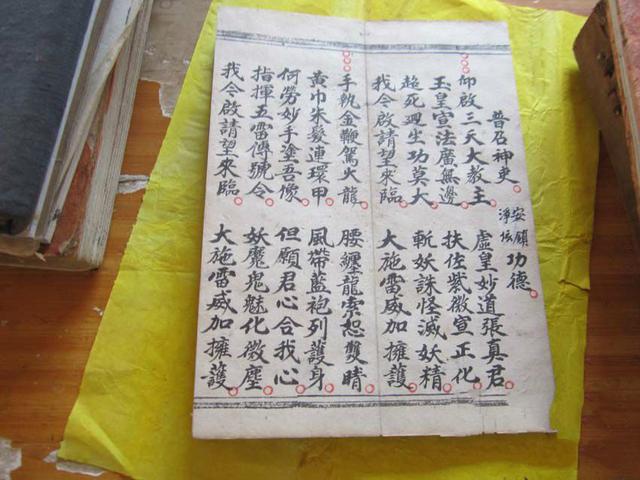 普召神吏 功德
仰啟三天大教主 虛皇妙道張真君
玉皇宣法廣無邊 扶佐紫微宣正化
超死迴生功莫大 斬妖誅怪滅妖精
我今啟請望來臨 大施雷威加擁護
手執金鞭駕火龍 腰纏龍索恕雙睛
黃巾朱髮連環甲 風帶藍袍列護身
何勞妙手塗吾像 但願君心合我心
指揮五雷傳號令 妖魔鬼魅化微塵
我今啟請望來臨 大施雷威加擁護